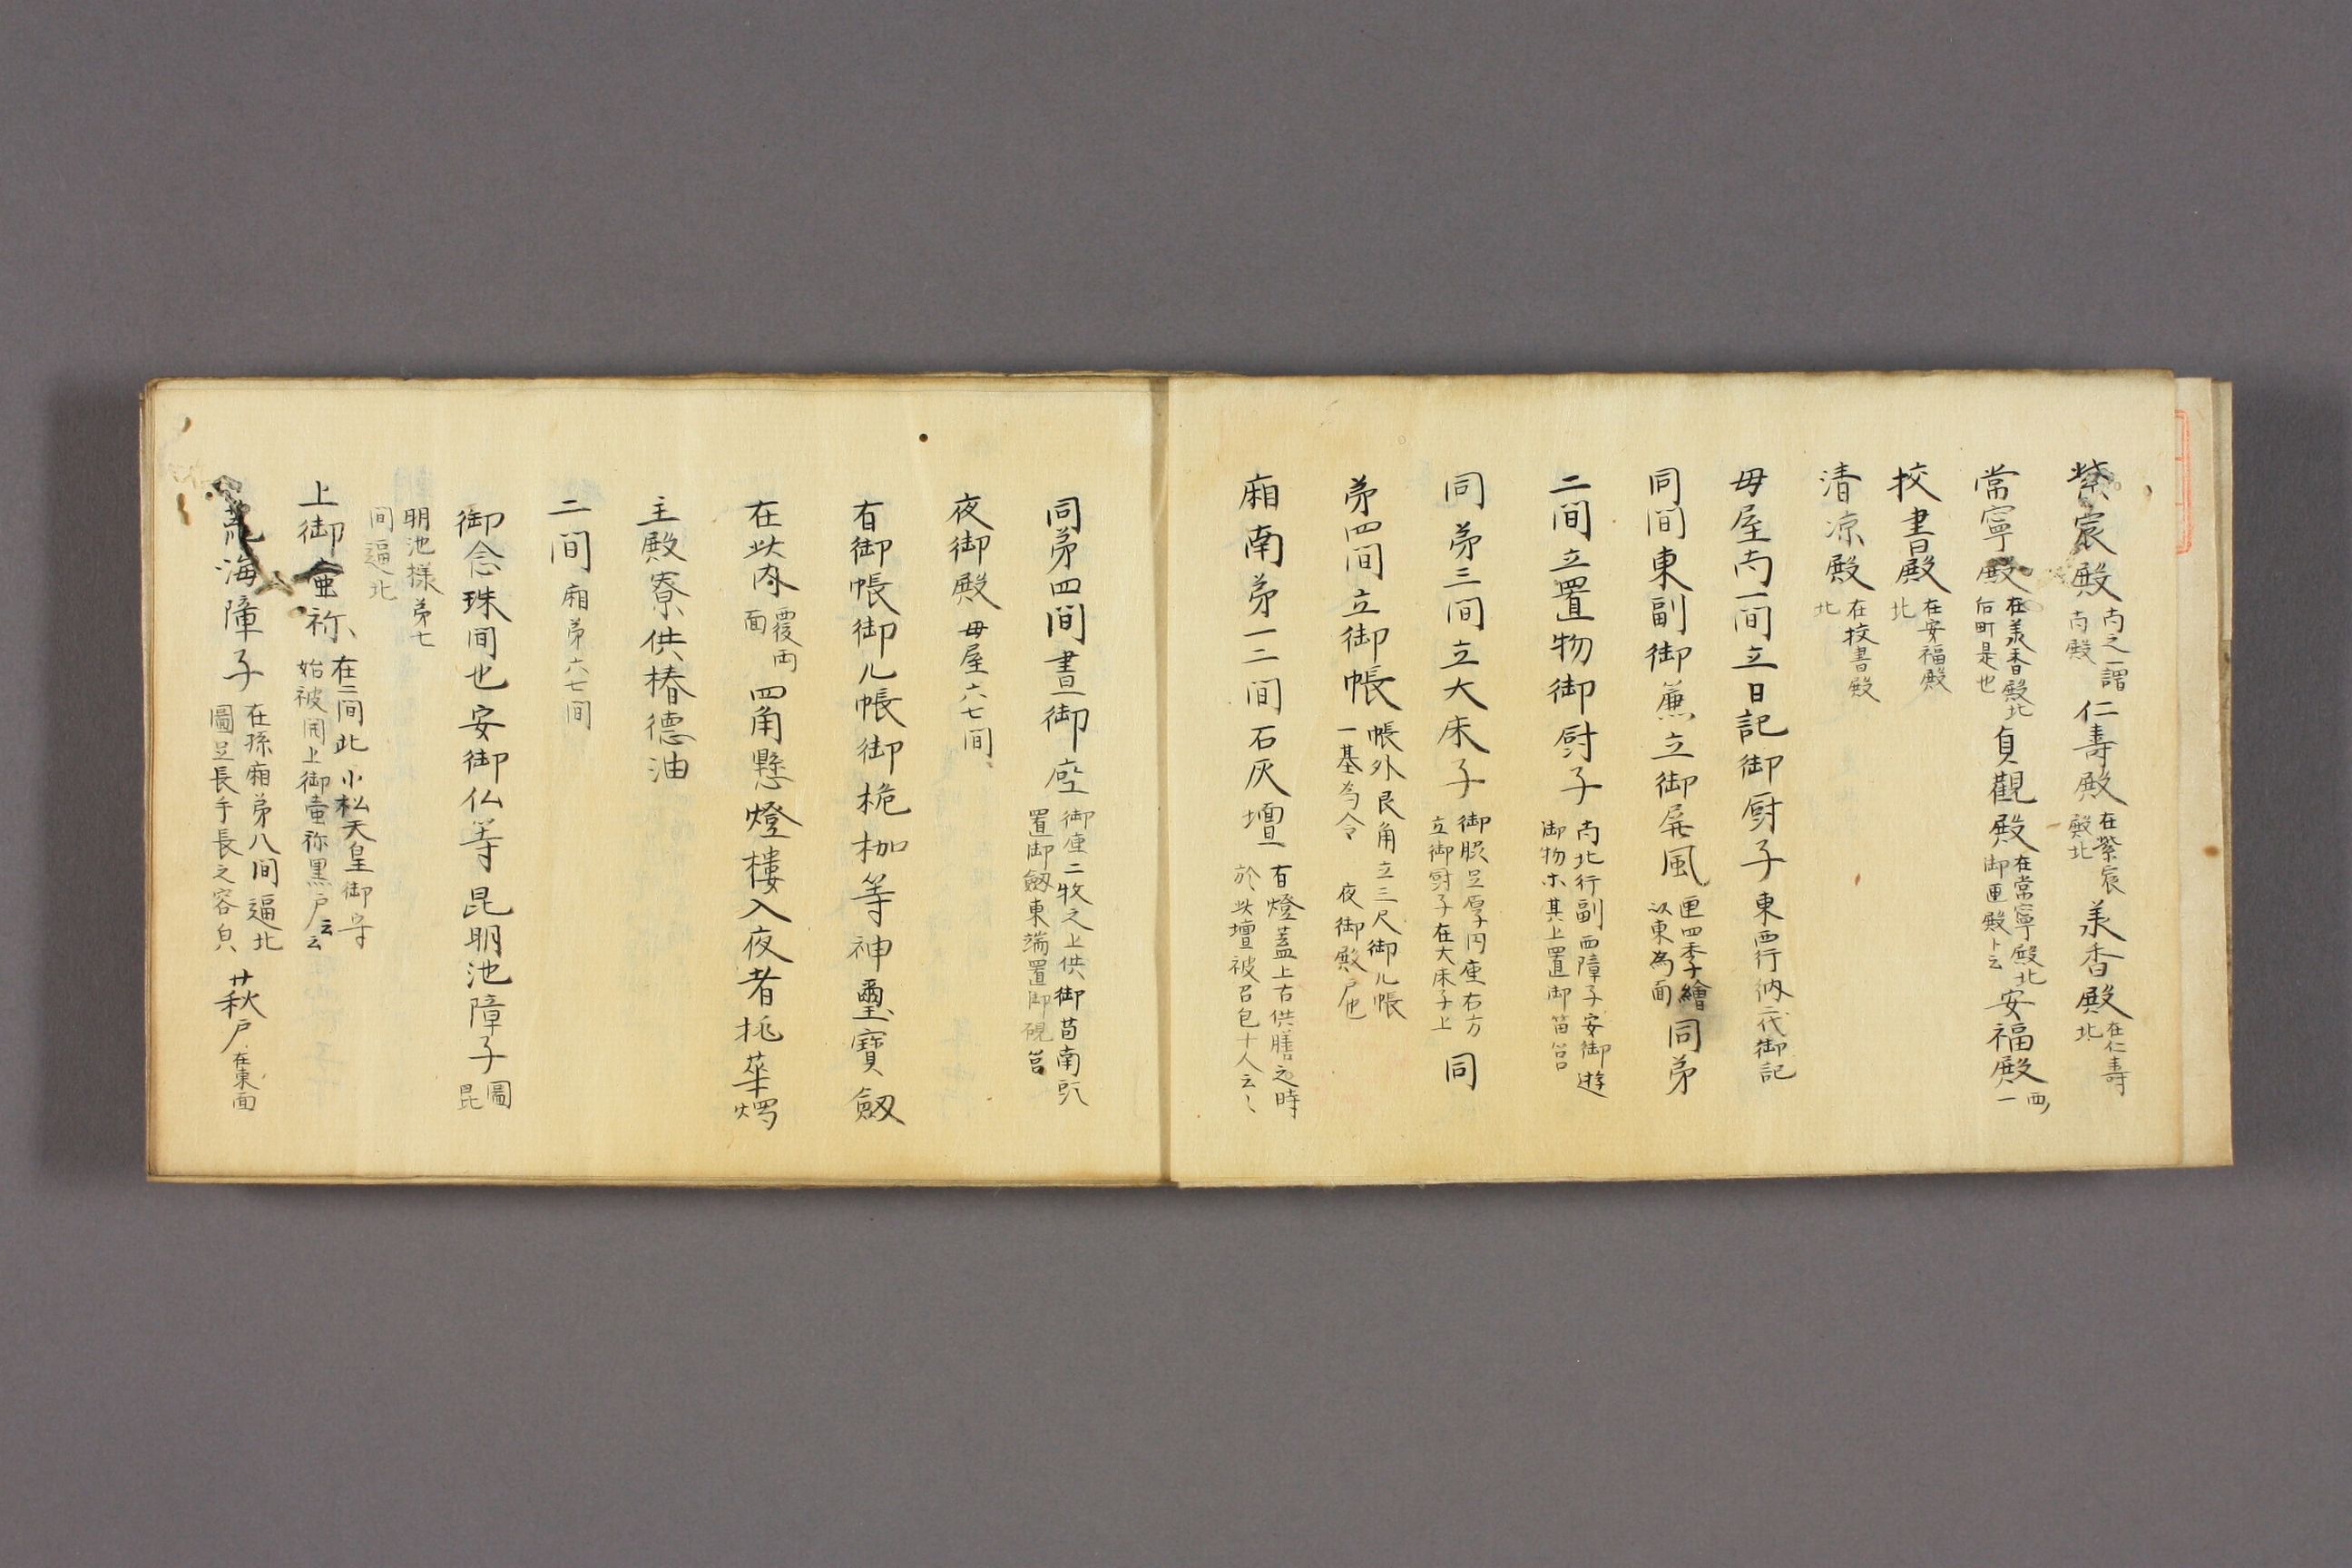 紫宸殿 南之一謂南殿 仁壽殿 在紫宸殿北 羕香殿 在仁壽北
常寧殿 在羕香殿北后町是也 貞觀殿 在常寧殿北御匣殿卜云 安福殿 西一
挍書殿 在安福殿北
清凉殿 在挍書殿北
母屋南一間立日記御厨子 東西行納二代御記
同間東副御簾立御屏風 匣四季繪以東為面 同第
二間立置物御厨子 南北行副西障子安御遊御物ホ其上置御笛筥
同第三間立大床子 御服足厚円座右方立御厨子在大床子上 同
第四間立御帳 帳外艮角立三尺御几帳一基為令 夜御殿戸也
廂南第一二間石灰壇 有燈蓋上古供膳之時於此壇被召包十人云〻
同第四間晝御座 御座二枚之上供御茵南頭置御劔東端置御硯筥
夜御殿 母屋六七間
有御帳御几帳御桅枷等神璽寳劔
在此内 覆両面 四角懸燈樓入夜者挑華燭
主殿寮供椿德油
二間 廂第六七間
御念珠間也安御仏等昆明池障子 圖昆
明池様第七間逼北
上御壷祢 在二間北小松天皇御宇始被用上御壷祢黒戸云云
荒海障子 在孫廂第八間逼北圖足長手長之容貟 萩戸 在東面